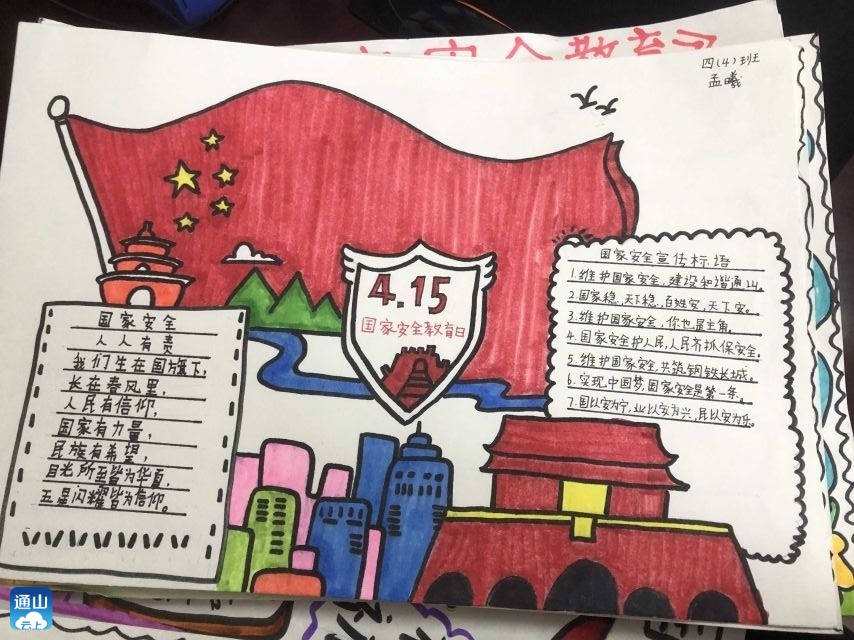 四(4)班
孟曦
4.15
国家安全教育日
国家安全
人人有责
我们生在国旗下,
长在春风里,
人民有信仰,
国家有力量,
民族有希望,
目光所至皆为华夏,
五星闪耀皆为信仰。
国家安全宣传标语
1.维护国家安全,建设和谐通山。
2.国家稳,天下稳,百姓安,天下安。
3.维护国家安全,你也是主角。
4.国家安全护人民,人民齐抓保安全。
5.维护国家安全,共筑钢铁长城。
6.实现中国梦,国家安全是第一条。
7.国以安为宁,业以安为兴,民以安为乐。
通山
云上